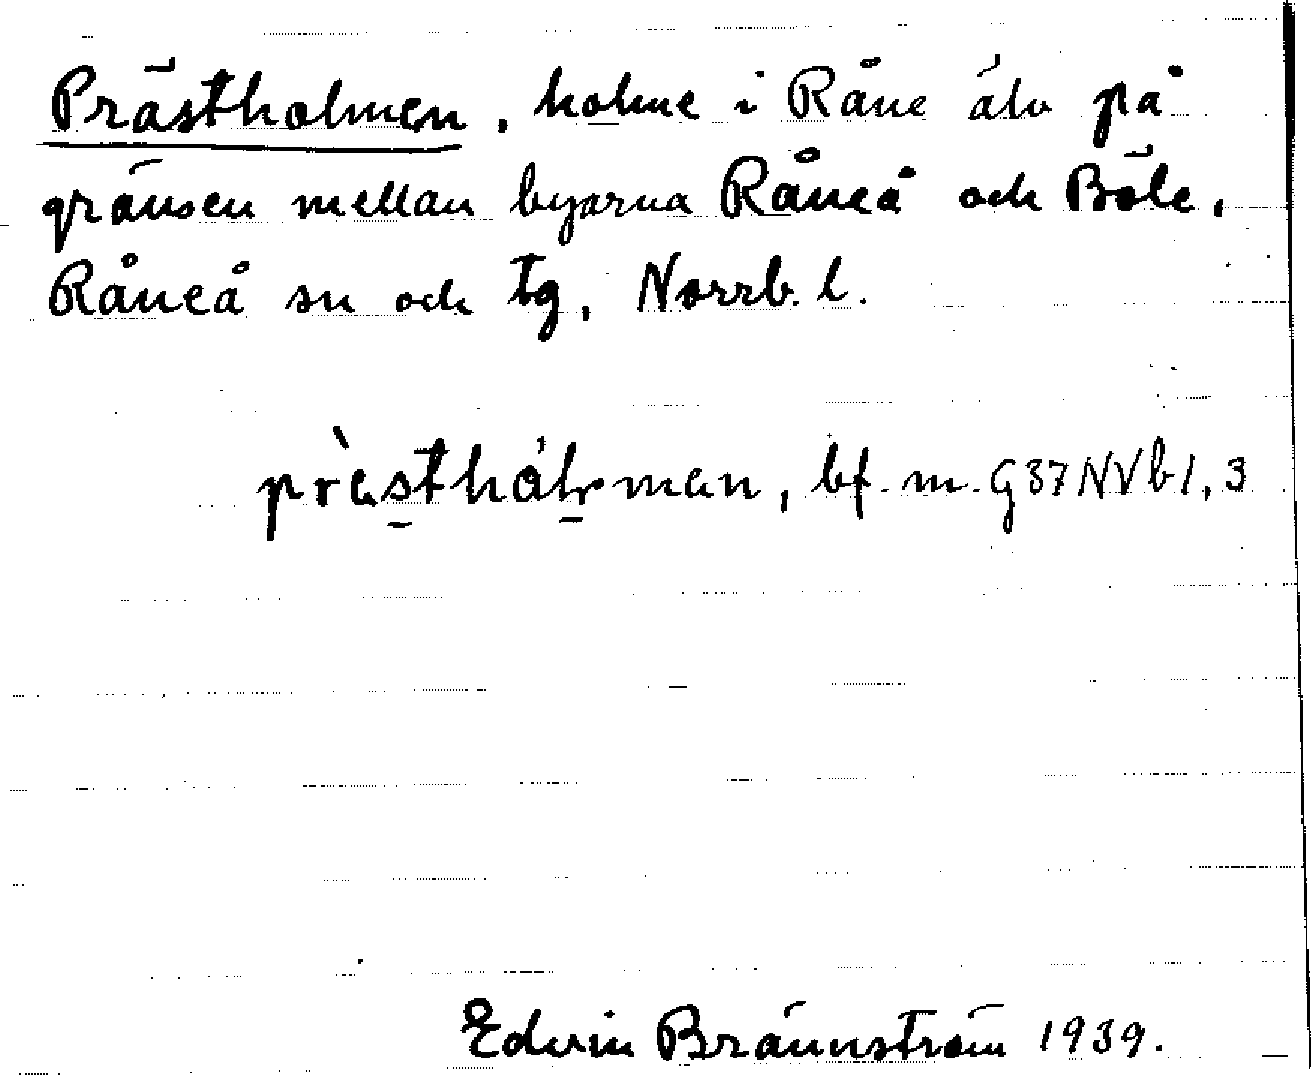 Prästholmen, holme i Råne älv på
gränsen mellan byarna Råneå och Böle,
Råneå sn och tg, Norrb. l.
prèsthól̥man, bf. m. G37NVb1,3
Edvin Brännström 1939.